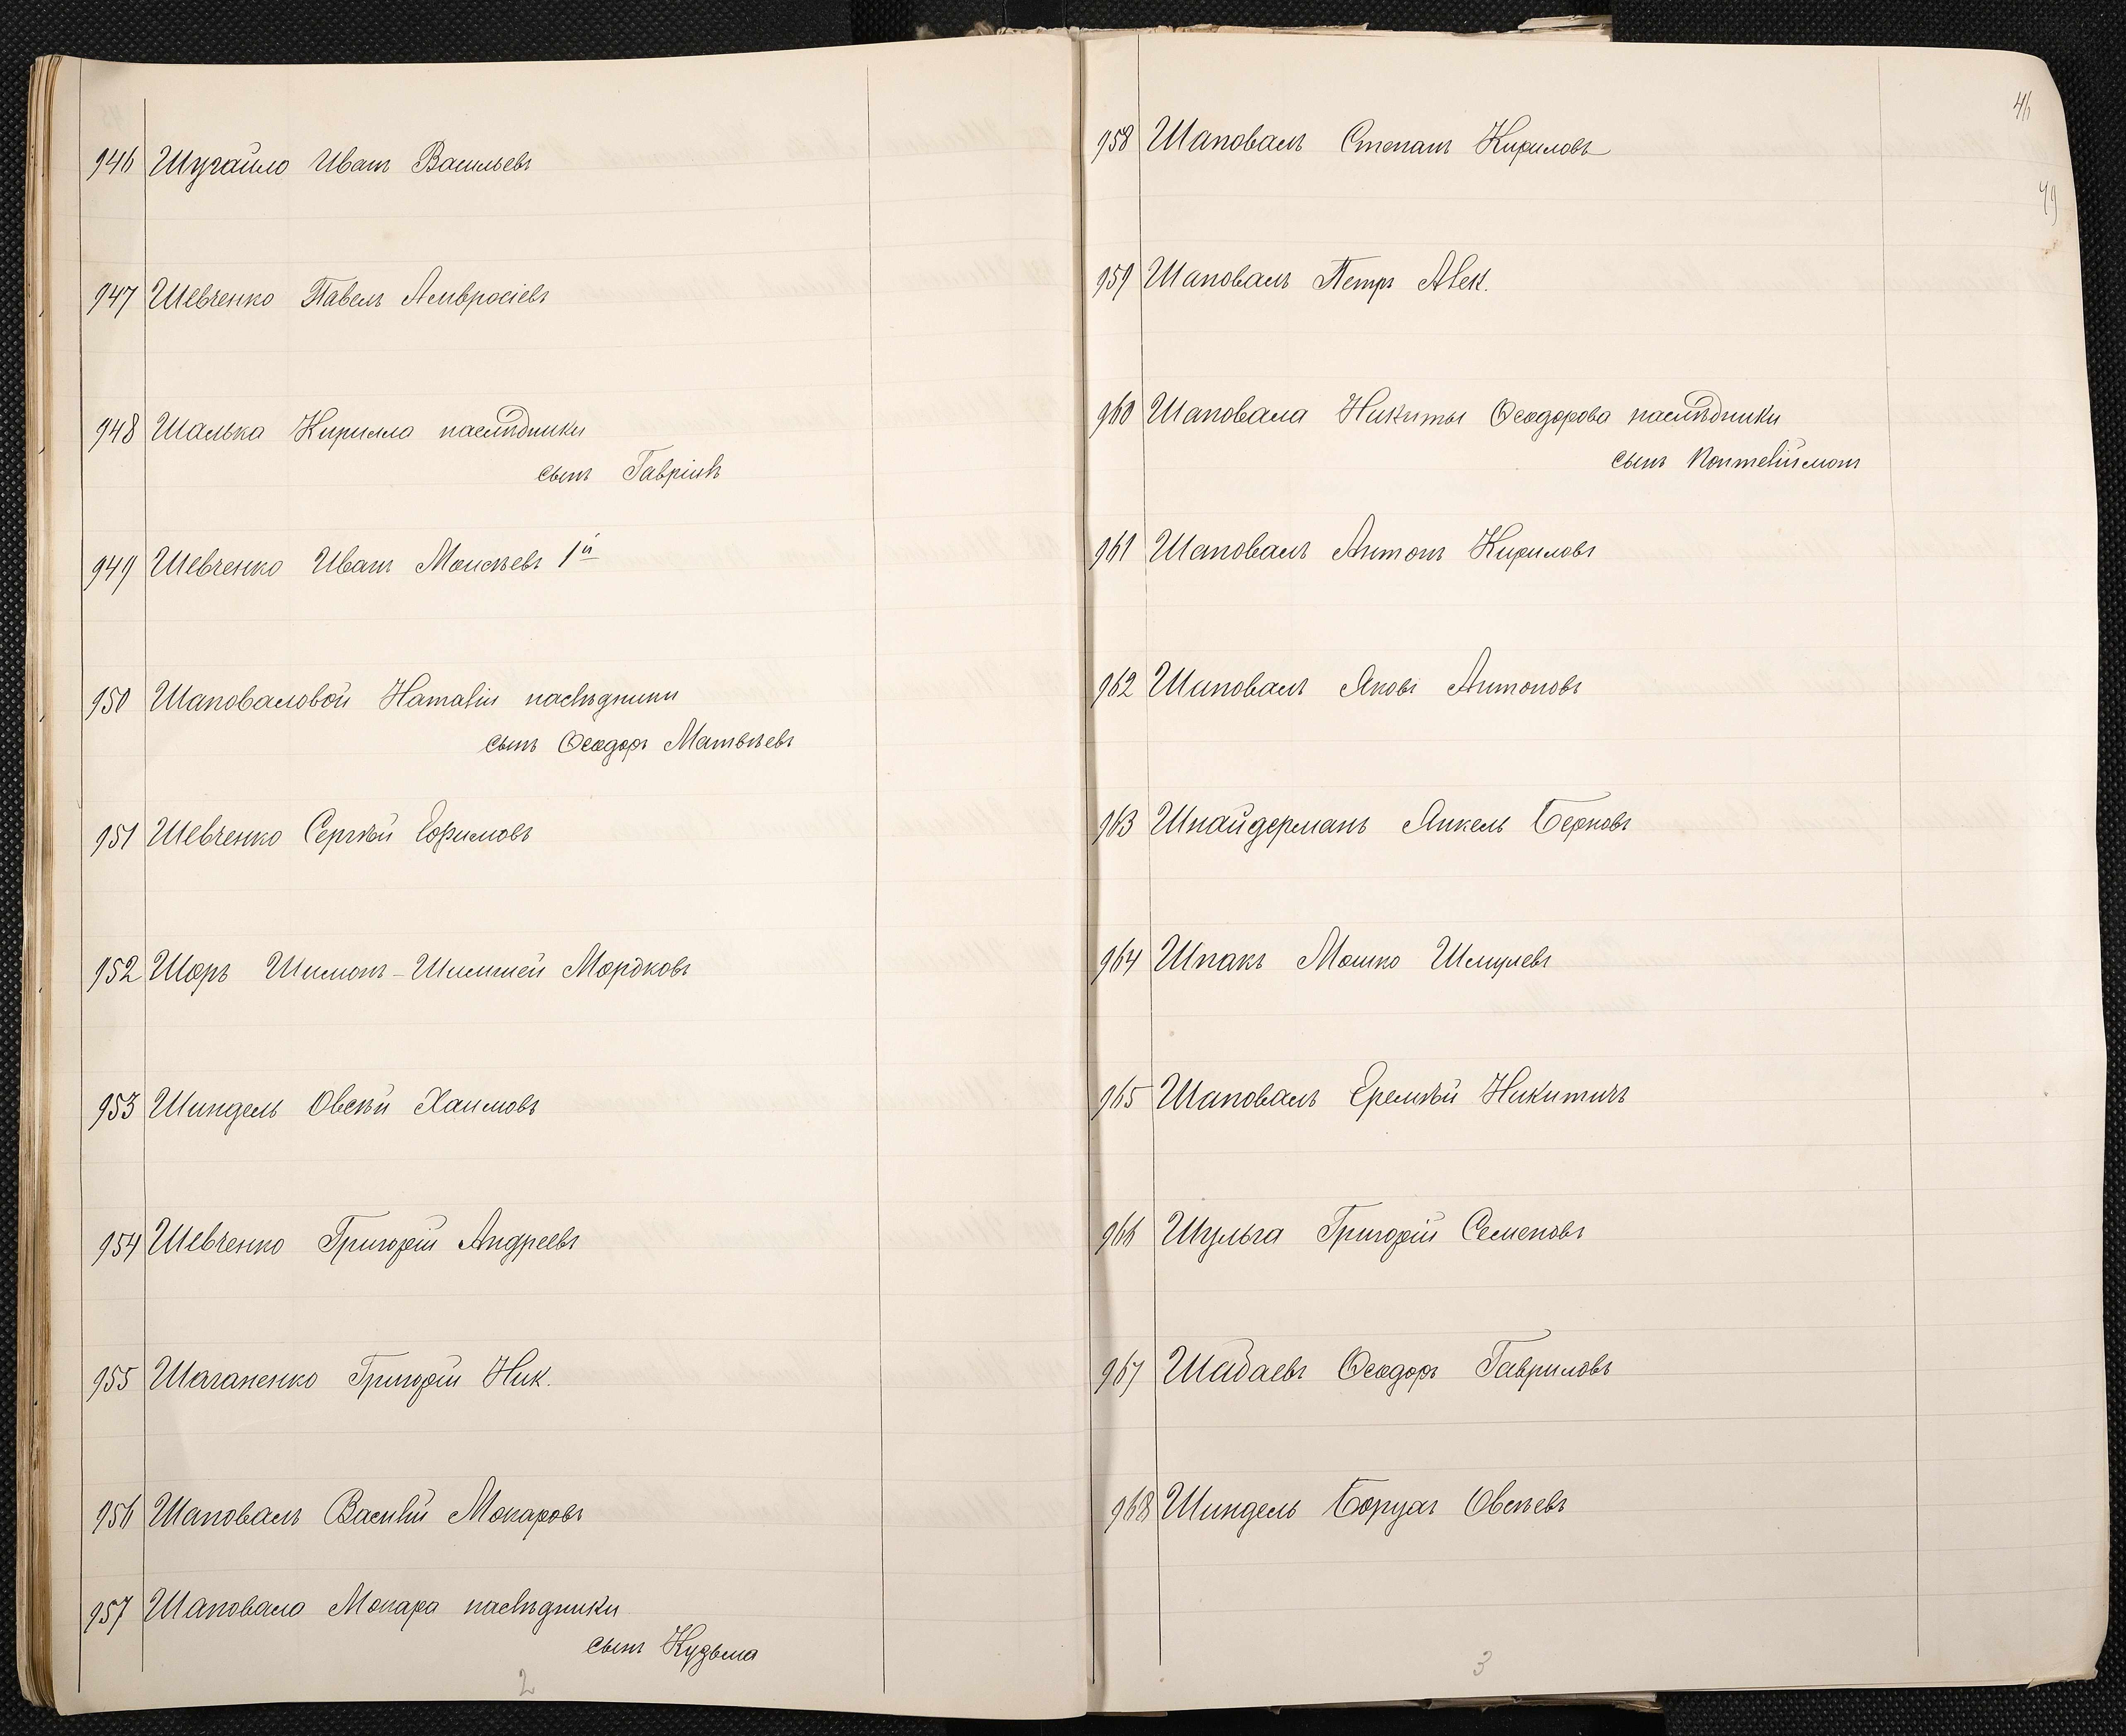 946 Шугайло Иванъ Васильевъ
947 Шевченко Павелъ Амвросіевъ
948 Шалька Кирилла наслѣдники
сынъ Гавріилъ
949 Шевченко Иванъ Моисѣевъ 1й
950 Шаповаловой Наталіи наслѣдники
сынъ Ѳеодоръ Матвѣевъ
951 Шевченко Сергѣй Ефимовъ
952 Шоръ Шимонъ-Шлиммей Мордковъ
953 Шиндель Овсѣй Хаимовъ
954 Шевченко Григорій Андреевъ
955 Шаганенко Григорій Ник.
956 Шаповалъ Василій Макаровъ
957 Шаповала Макара наслѣдники
сынъ Кузьма
2
46
49
958 Шаповалъ Степанъ Кириловъ
959 Шаповалъ Петръ Алек.
960 Шаповала Никиты Ѳеодорова наслѣдники
сынъ Пантелеймонъ
961 Шаповалъ Антонъ Кириловъ
962 Шаповалъ Яковъ Антоновъ
963 Шнайдерманъ Янкель Берковъ
964 Шпакъ Мошко Шмулевъ
965 Шаповалъ Еремѣй Никитичъ
966 Шульга Григорій Семеновъ
967 Шадаевъ Ѳеодоръ Гавриловъ
968 Шиндель Борухъ Овсѣевъ
3